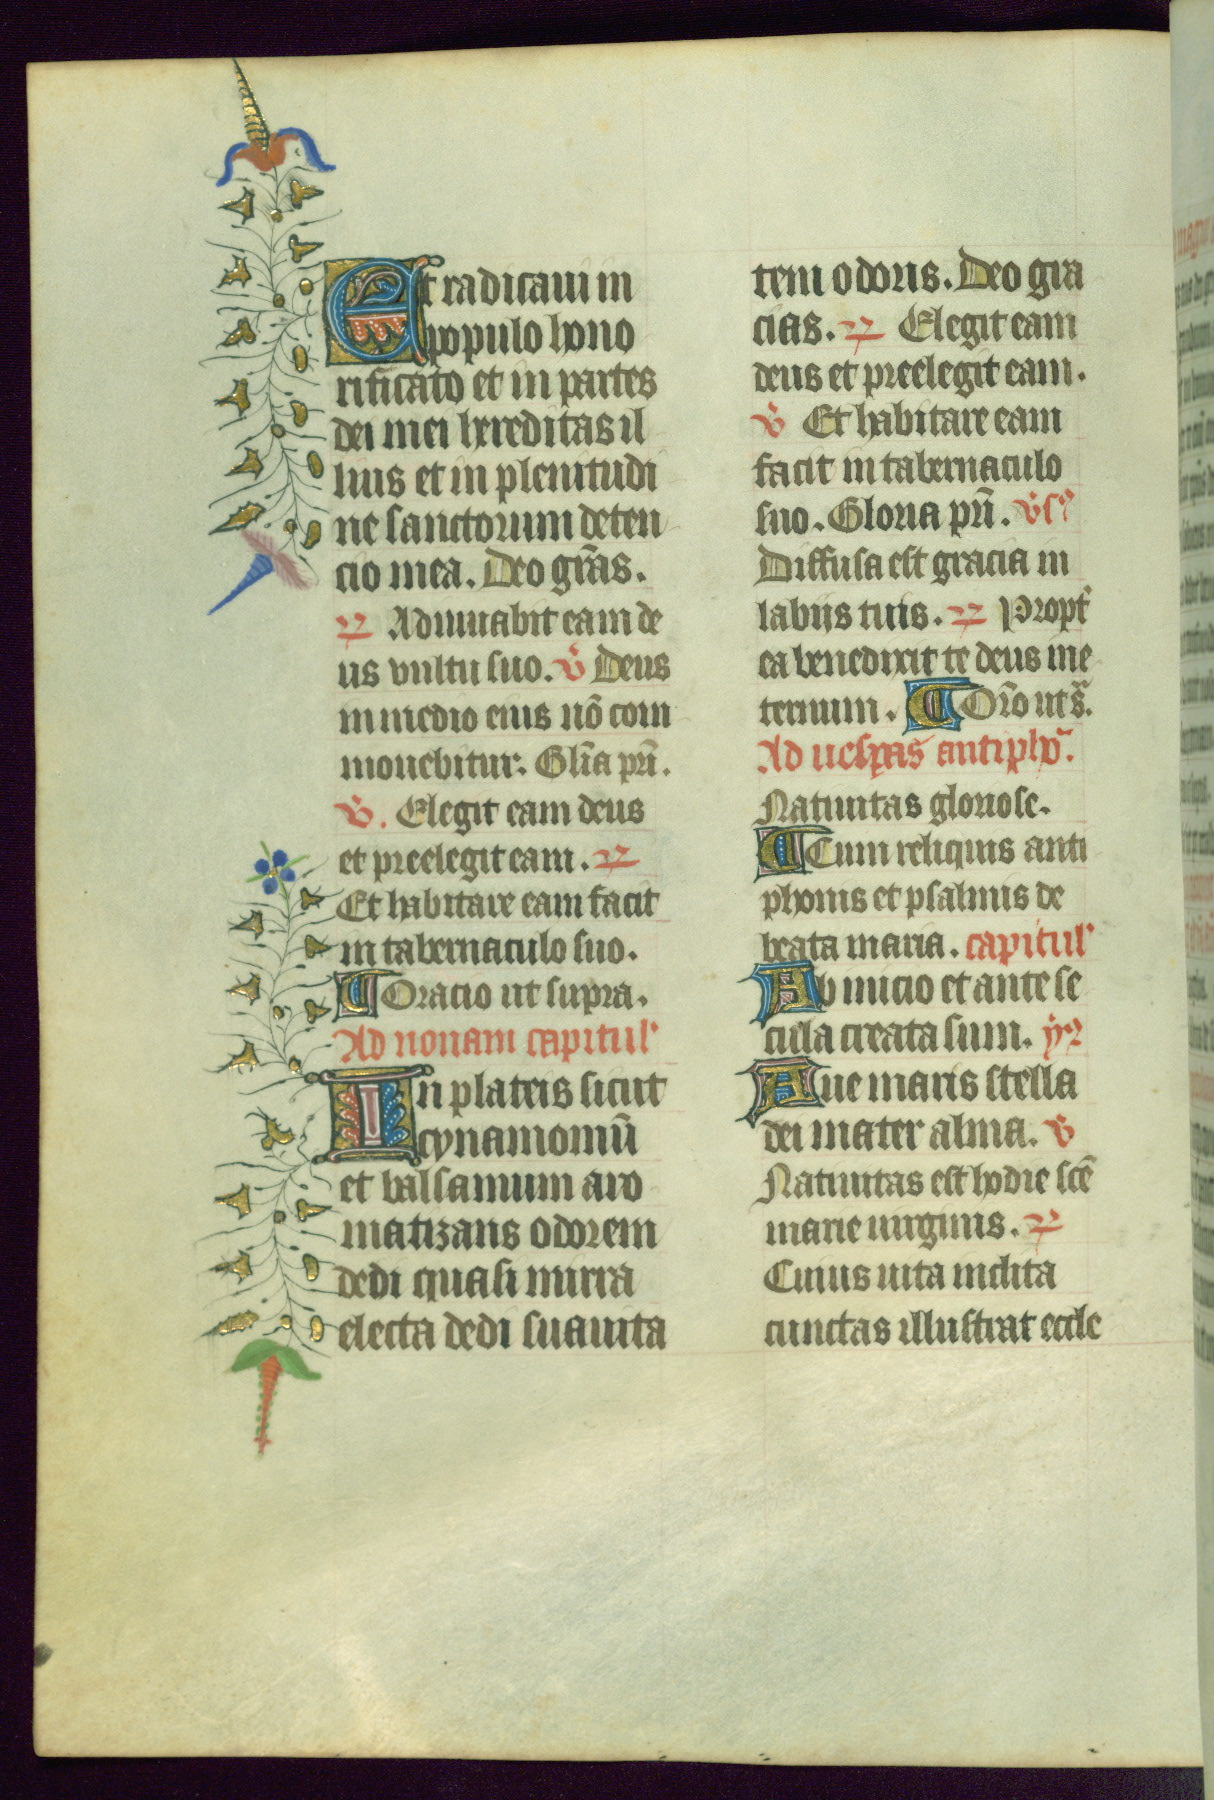 Et radicaui in
populo hono
rificato et in partes
dei mei hereditas il
lius et in plenitudi
ne sanctorum deten
cio mea. Deo grãs.
℟ Adiuuabit eam de
us vultu suo. ℣ Deus
in medio eius nõ com
mouebitur. Glĩa pñ.
℣. Elegit eam deus
et preelegit eam. ℟
Et habitare eam facit
in tabernaculo suo.
Oracio ut supra.
Ad nonam capitul'
In plateis sicut
cynamomũ
et balsamum aro
matizans odorem
dedi quasi mirra
electa dedi suauita
tem odoris. Deo gra
cias. ℟ Elegit eam
deus et preelegit eam.
℣ Et habitare eam
facit in tabernaculo
suo. Gloria pñ. ℣s
Diffusa est gracia in
labiis tuis. ℟ Propt'
ea benedixit te deus in e
ternum. Orõ ut s.
Ad uesp̃as antiph̃.
Natiuitas gloriose.
Cum reliquis anti
phonis et psalmis de
beata maria. capitul'
Ab inicio et ante se
cula creata sum. ym
Aue maris stella
dei mater alma. ℣
Natiuitas est hodie scẽ
marie uirginis. ℟
Cuius uita inclita
cunctas illustrat eccle